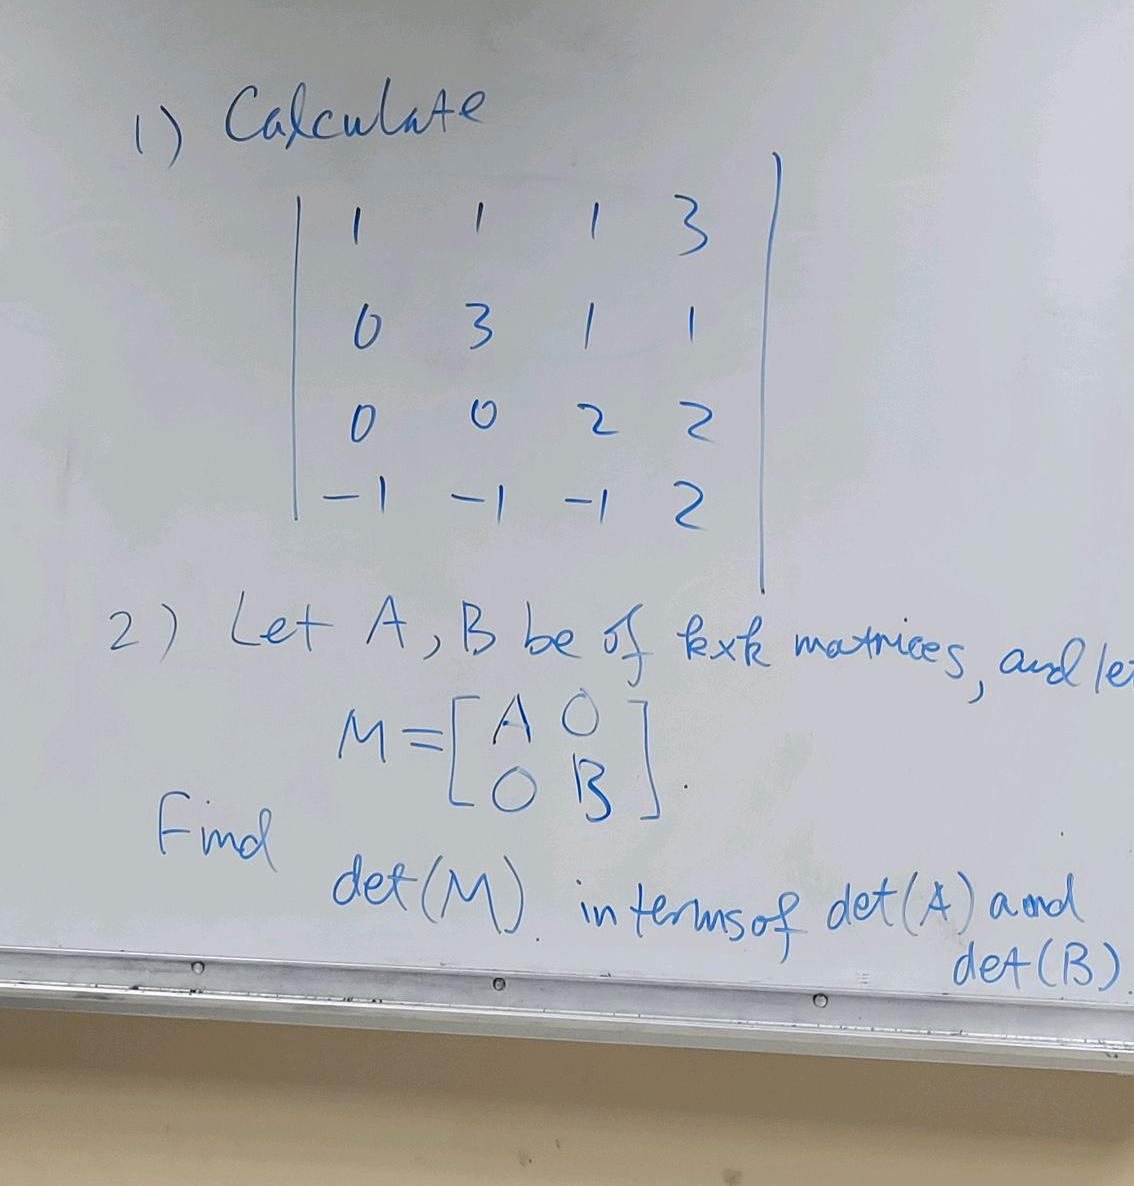 1) Calculate
| 1 1 1 3 |
0 3 1 1
0 0 2 2
-1 -1 -1 2
2) Let A, B be of kxk matrices, and le
M = [ A O
O B ].
Find
det(M). in terms of det(A) and
det(B).